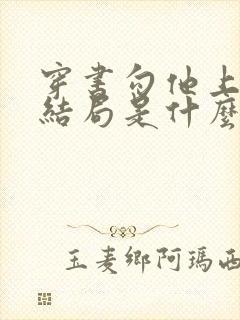 穿書勾他上
結局是什麼
玉麦鄉阿瑪西